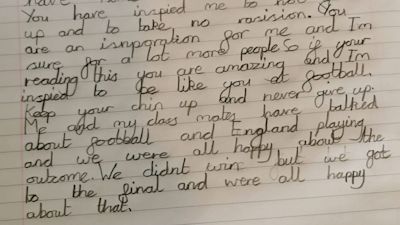 You have inspied me to not
up and to take no rasision. You
are an isnyporation for me and I'm
sure for a lot more people So if your
reading this you are amazing and I'm
inspied to be like you at football.
Keep your chin up and never give up.
Me and my class mates have talked
about football and England playing
and we were all happy about the
outcome. We didnt win but we got
to the final and were all happy
about that.